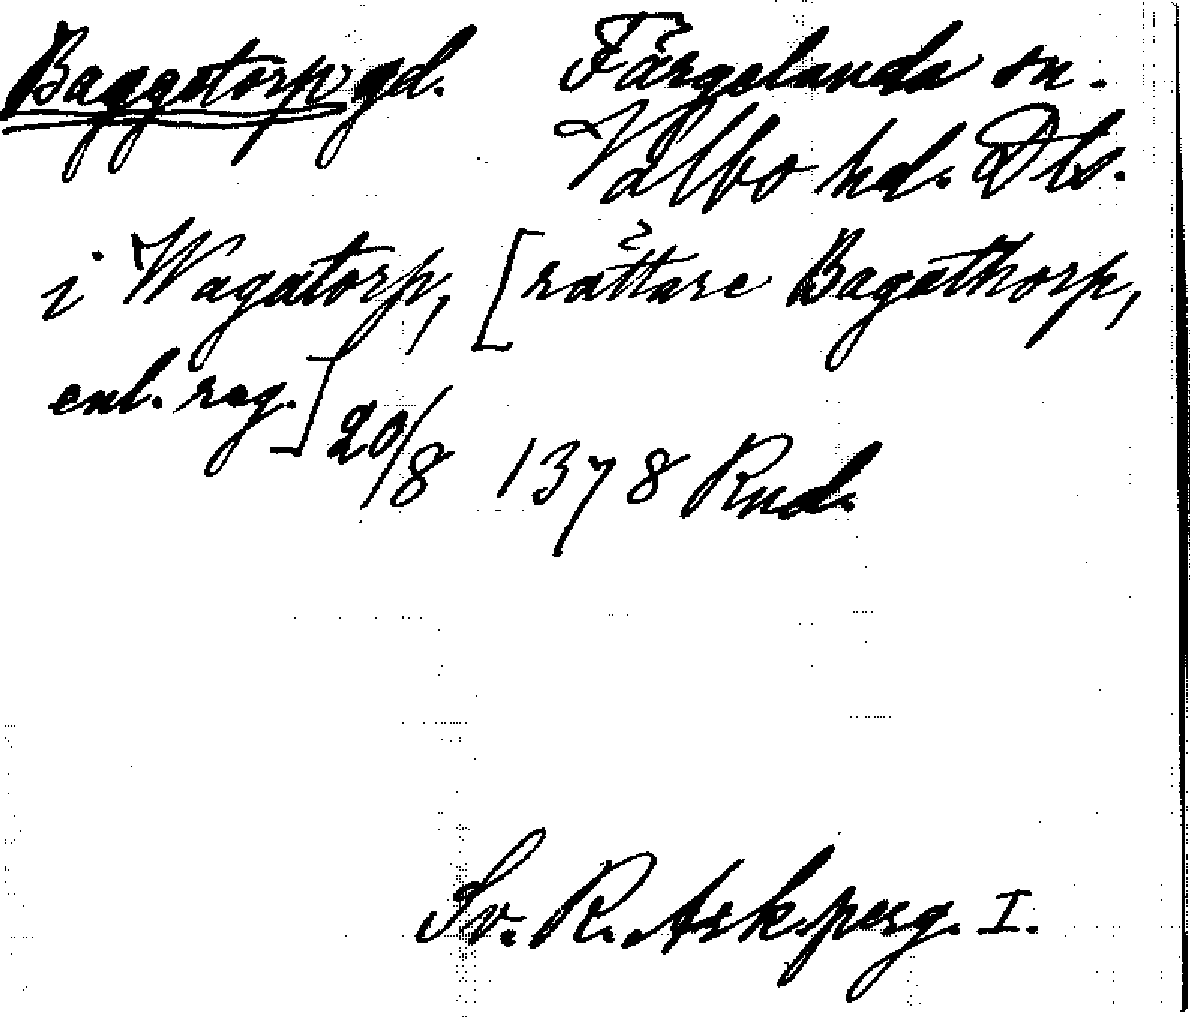 Baggetorp gd. Färgelanda sn.
Valbo hd. Dls.
i Wagatorp, [rättare Bagathorp,
enl. reg.] 20/8 1378 Rud.
Sv. R. Ark. perg. I.